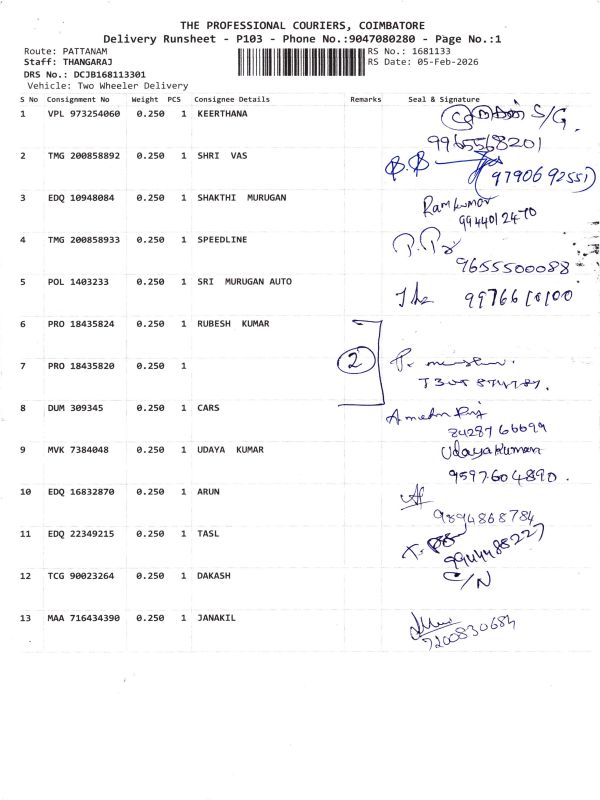 THE PROFESSIONAL COURIERS, COIMBATORE
Delivery Runsheet - P103 - Phone No.:9047080280 - Page No.:1
Route: PATTANAM RS No.: 1681133
Staff: THANGARAJ RS Date: 05-Feb-2026
DRS No.: DCJB168113301
Vehicle: Two Wheeler Delivery
S No Consignment No Weight PCS Consignee Details Remarks Seal & Signature
1 VPL 973254060 0.250 1 KEERTHANA S/G.
9965568201
2 TMG 200858892 0.250 1 SHRI VAS
9790692551
3 EDQ 10948084 0.250 1 SHAKTHI MURUGAN Ramkumar
9944012470
4 TMG 200858933 0.250 1 SPEEDLINE
9655500088
5 POL 1403233 0.250 1 SRI MURUGAN AUTO
6 PRO 18435824 0.250 1 RUBESH KUMAR
7 PRO 18435820 0.250 1 2
8 DUM 309345 0.250 1 CARS
9 MVK 7384048 0.250 1 UDAYA KUMAR Udayakumar
9597604890.
10 EDQ 16832870 0.250 1 ARUN
9894868784
11 EDQ 22349215 0.250 1 TASL
12 TCG 90023264 0.250 1 DAKASH C/N
13 MAA 716434390 0.250 1 JANAKIL
7200830684